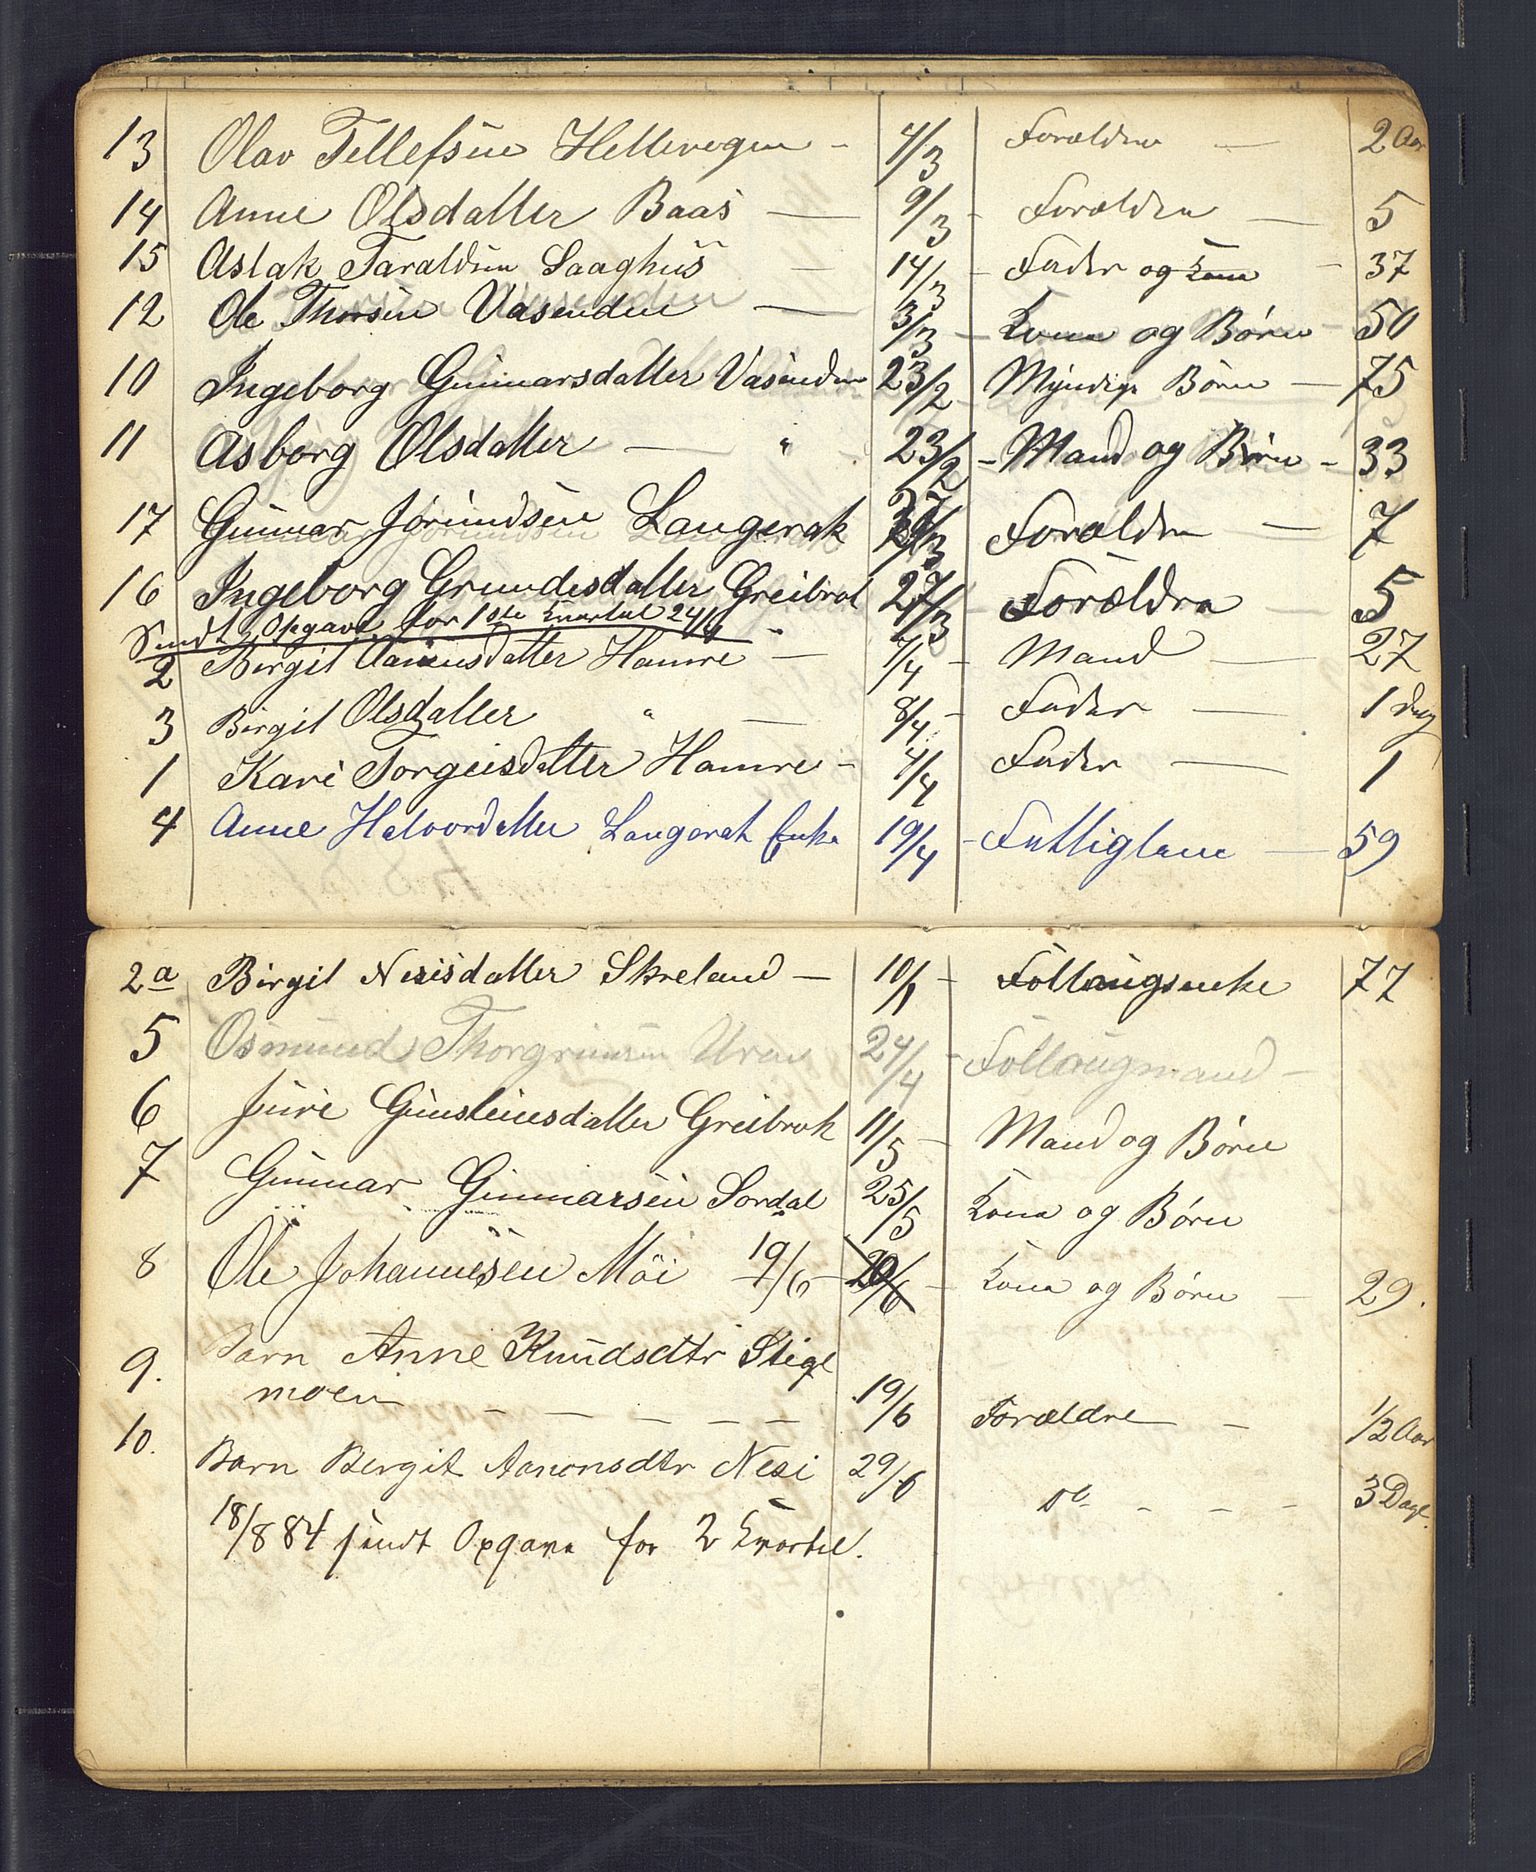 13 Olav Tellefsen Hellevegen - 4/3 Forældre — 2 Aar
14 Anne Olsdatter Baas — 9/3 - Forældre — 5
15 Aslak Taraldsen Saaghus — 14/3 - Fader og Kona - 37
12 Ole Thorsen Vasenden — 3/3 - Kona og Børn - 50
10 Ingeborg Gunnarsdatter Vasenden 23/2 Myndige Børn — 75
11 Asborg Olsdatter — " 23/2 - Mand og Børn - 33
17 Gunnar Jørundsen Langerak 27/3 Forældre — 7
16 Ingeborg Grundesdatter Greibrok 27/3 - Forældre — 5
Sendt Opgave for 1ste Kvartal 24/4
2 Birgit Aanensdatter Hamre — 7/4 - Mand — 27
3 Birgit Olsdatter " — 8/4 - Fader — 1 Dag
1 Kari Torgeisdatter Hamre - 4/4 Fader — 1
4 Anne Halvordatter Langerak Enke 19/4 - Fattiglem — 59
2a Birgit Neridsdatter Skreland — 10/1 - Follaugsenke 77
5 Osmund Thorgrimsen Uren 24/4 - Follaugmand -
6 Juve Gunsteinsdatter Greibrok 11/5 - Mand og Børn
7 Gunnar Gunnarsen Sordal 25/5 Kona og Børn
8 Ole Johannesen Moi 19/6 - 20/6 - Kona og Børn - 29.
9. Barn Anne Knudsdtr Stige
moen - - - - - 19/6 Forældre - 1/2 Aar
10. Barn Bergit Aanonsdtr Nesi 29/6 do - - - 3 Dage.
18/8 84 sendt Opgave for 2 Kvartal.